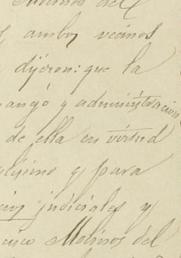 del
ambos vecinos
dijeron: que la
y administracion
de ella en virtud
y para
judiciales y
Molinos del